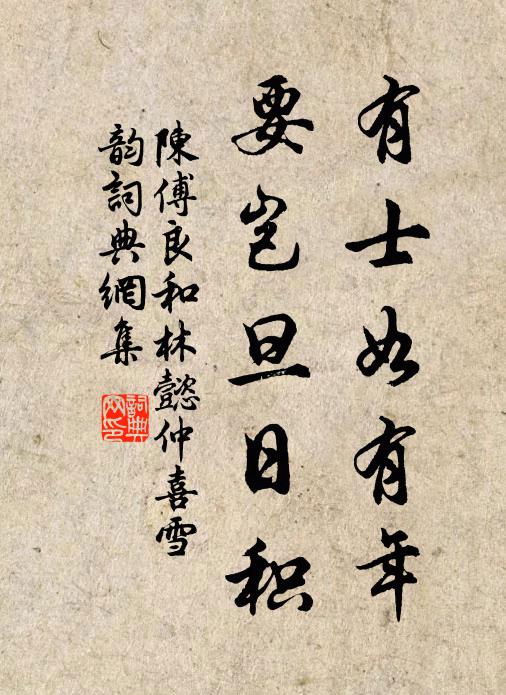 有士如有年
要岂旦日积
陳傅良和林懿仲喜雪
韵詞典網集
詞典網印